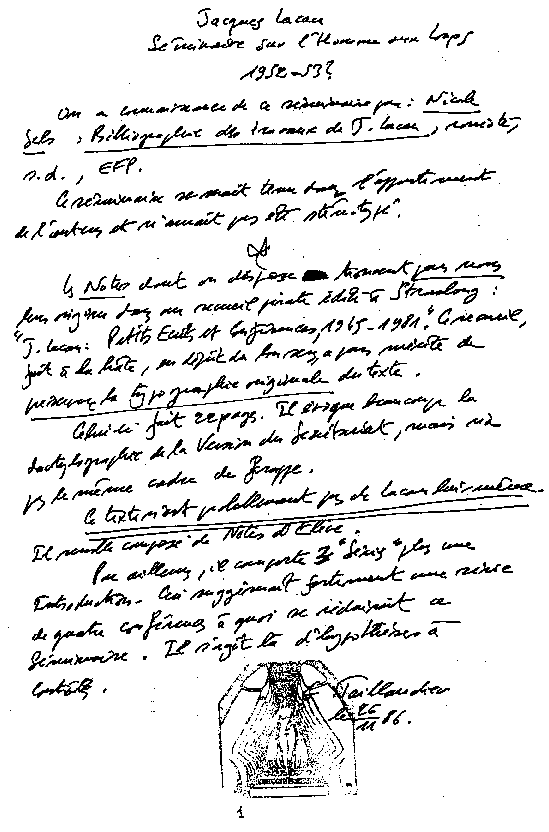 Jacques Lacan
Séminaire sur l'Homme aux loups
1952-53?
On a connaissance de ce séminaire par : Nicole
Sels, Bibliographie des travaux de J. Lacan, ronéoté,
s.d., EFP.
Ce séminaire se serait tenu dans l'appartement
de l'auteur et n'aurait pas été sténotypé.
Les Notes dont on dispose trouvent pour nous
leur origine dans un recueil pirate édité à Strasbourg :
"J. Lacan : Petits Ecrits et Conférences, 1945-1981". Ce recueil,
fait à la hâte, en dépit du bon sens, a pour mérite de
préserver la typographie originale du texte.
Celui-ci fait 22 pages. Il évoque beaucoup la
dactylographie de la Version du Secrétariat, mais n'a
pas le même cadre de frappe.
Ce texte n'est probablement pas de Lacan lui-même.
Il semble composé de Notes d'Elève.
Par ailleurs, il comporte 3 "Séries" plus une
Introduction. Ceci suggérerait fortement une série
de quatre conférences à quoi se réduirait ce
Séminaire. Il s'agit là d'hypothèses à
contrôler.
G. Taillandier
le 26/11 86.
1